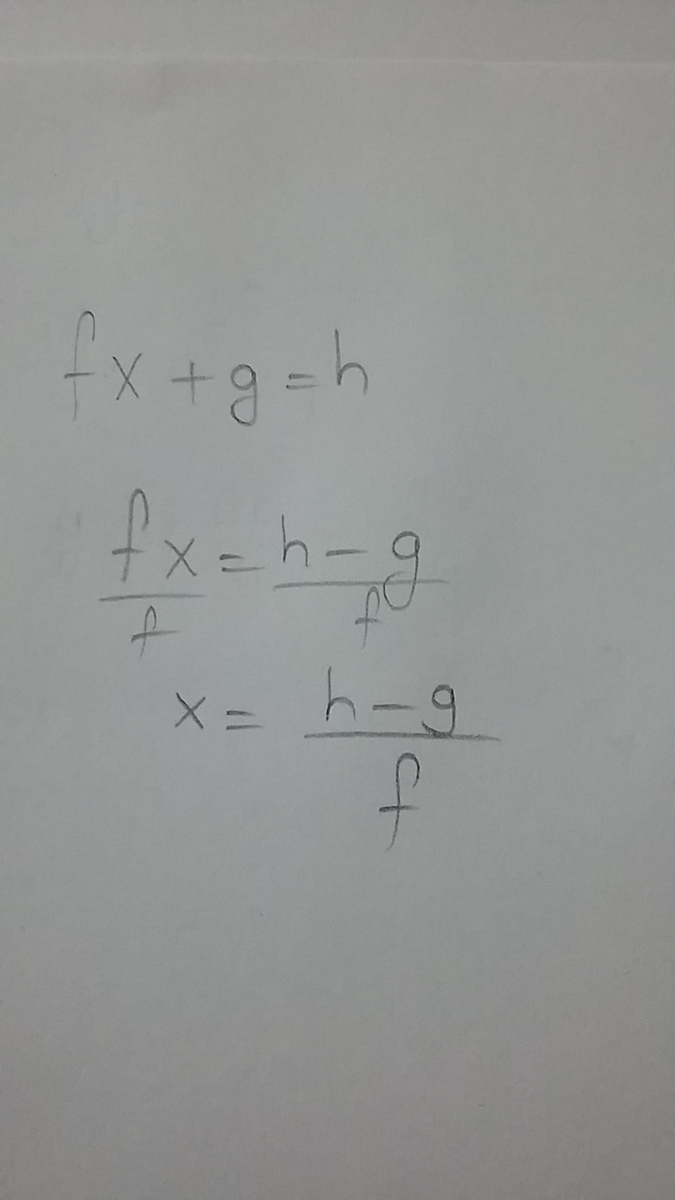 fx + g = h
fx/f = h - g/f
x = h - g/f